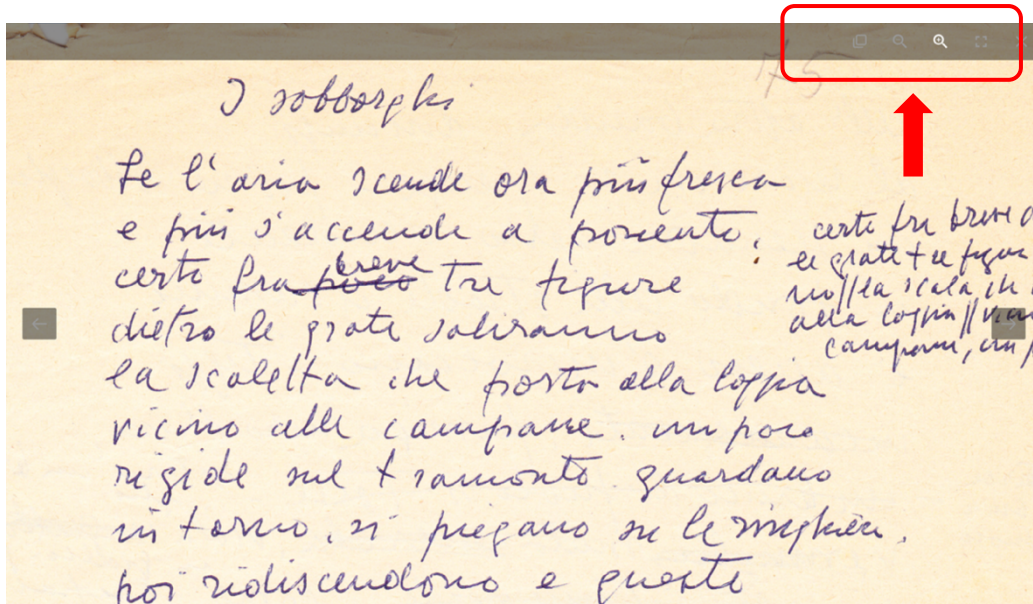 75
I sobborghi
Se l'aria scende ora più fresca
e più s'accende a ponente,
certo fra poco breve tre figure
dietro le grate saliranno
la scaletta che porta alla loggia
vicino alle campane. un poco
rigide sul tramonto guardano
intorno, si piegano su le ringhiere,
poi ridiscendono e queste
certo fra breve
le grate tre figur
no//la scala ch
alla loggia//vicin
campane, un